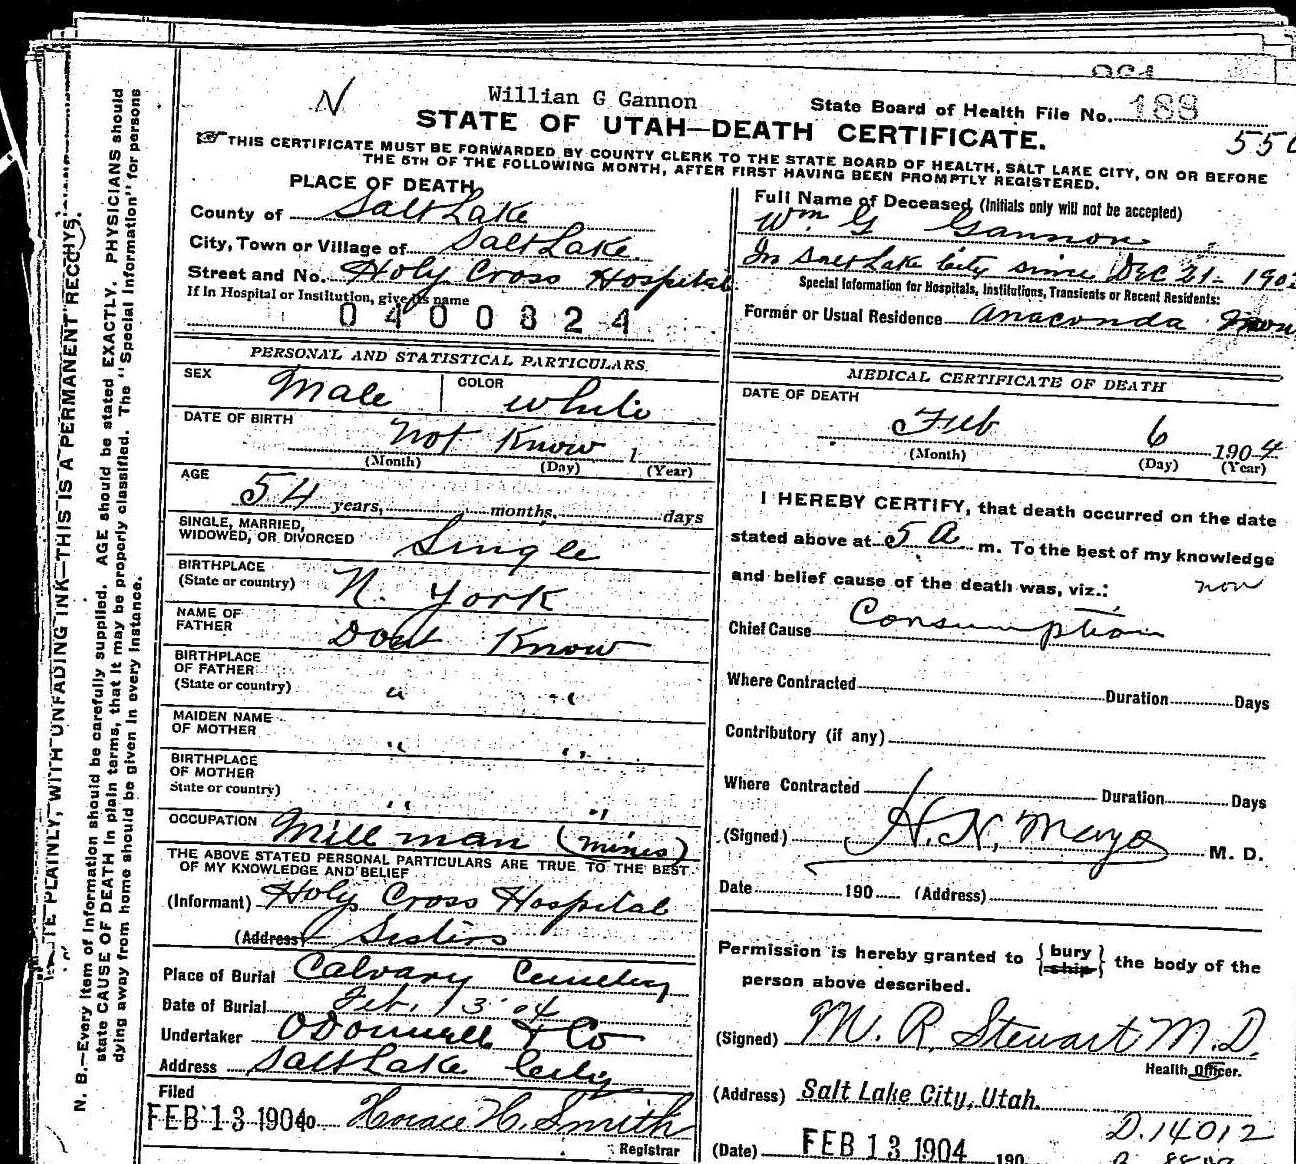 N
Willian G Gannon
State Board of Health File No. 188
STATE OF UTAH—DEATH CERTIFICATE.
THIS CERTIFICATE MUST BE FORWARDED BY COUNTY CLERK TO THE STATE BOARD OF HEALTH, SALT LAKE CITY, ON OR BEFORE
THE 5TH OF THE FOLLOWING MONTH, AFTER FIRST HAVING BEEN PROMPTLY REGISTERED.
PLACE OF DEATH
County of Salt Lake
City, Town or Village of Salt Lake.
Street and No. Holy Cross Hospital
If in Hospital or Institution, give its name
0400824
PERSONAL AND STATISTICAL PARTICULARS.
SEX Male COLOR white
DATE OF BIRTH not Know 1
(Month) (Day) (Year)
AGE 54 years, months, days
SINGLE, MARRIED,
WIDOWED, OR DIVORCED Single
BIRTHPLACE
(State or country) N. York
NAME OF
FATHER Dont Know
BIRTHPLACE
OF FATHER
(State or country) " "
MAIDEN NAME
OF MOTHER " "
BIRTHPLACE
OF MOTHER
State or country) " "
OCCUPATION Mill man (mines)
THE ABOVE STATED PERSONAL PARTICULARS ARE TRUE TO THE BEST
OF MY KNOWLEDGE AND BELIEF
(Informant) Holy Cross Hospital
(Address) Sisters
Place of Burial Calvary Cemetery
Date of Burial Feb. 13 '04
Undertaker O'Donnell & Co
Address Salt Lake City
Filed
FEB 13 1904 190 Horace H. Smith
Registrar
Full Name of Deceased (Initials only will not be accepted)
Wm G Gannon
In Salt Lake City since Dec 21- 190
Special Information for Hospitals, Institutions, Transients or Recent Residents:
Former or Usual Residence Anaconda
MEDICAL CERTIFICATE OF DEATH
DATE OF DEATH
Feb 6 1904
(Month) (Day) (Year)
I HEREBY CERTIFY, that death occurred on the date
stated above at 5 A m. To the best of my knowledge
and belief cause of the death was, viz.:
Chief Cause Consumption
Where Contracted Duration Days
Contributory (if any)
Where Contracted Duration Days
(Signed) H. N. Mayo M. D.
Date 190 (Address)
Permission is hereby granted to {bury ship} the body of the
person above described.
(Signed) M. R. Stewart M.D.
Health Officer.
(Address) Salt Lake City, Utah
D.14012
(Date) FEB 13 1904 190
TE PLAINLY, WITH UNFADING INK—THIS IS A PERMANENT RECORD
N. B.—Every item of information should be carefully supplied. AGE should be stated EXACTLY. PHYSICIANS should
state CAUSE OF DEATH in plain terms, that it may be properly classified. The "Special Information" for persons
dying away from home should be given in every instance.